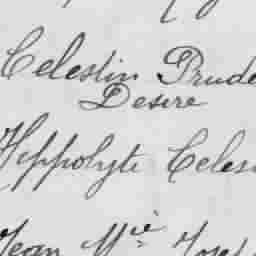 Celestin Prude
Desire
Hippolyte Celes
Jean Mie Josep